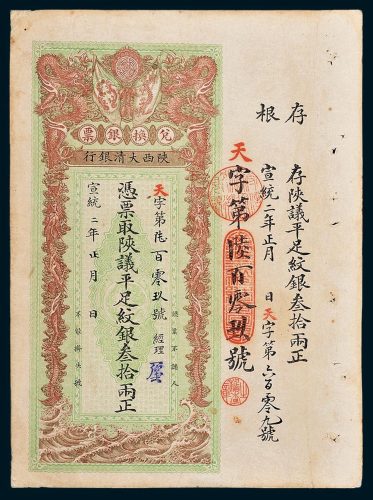 存根
存陝議平足紋銀叁拾兩正
宣統二年正月 日天字第六百零九號
天字第陸百零玖號
票銀換兌
行銀清大西陝
天字第陸百零玖號 經理
憑票取陝議平足紋銀叁拾兩正
宣統二年正月 日
認票不認人
不能掛失號